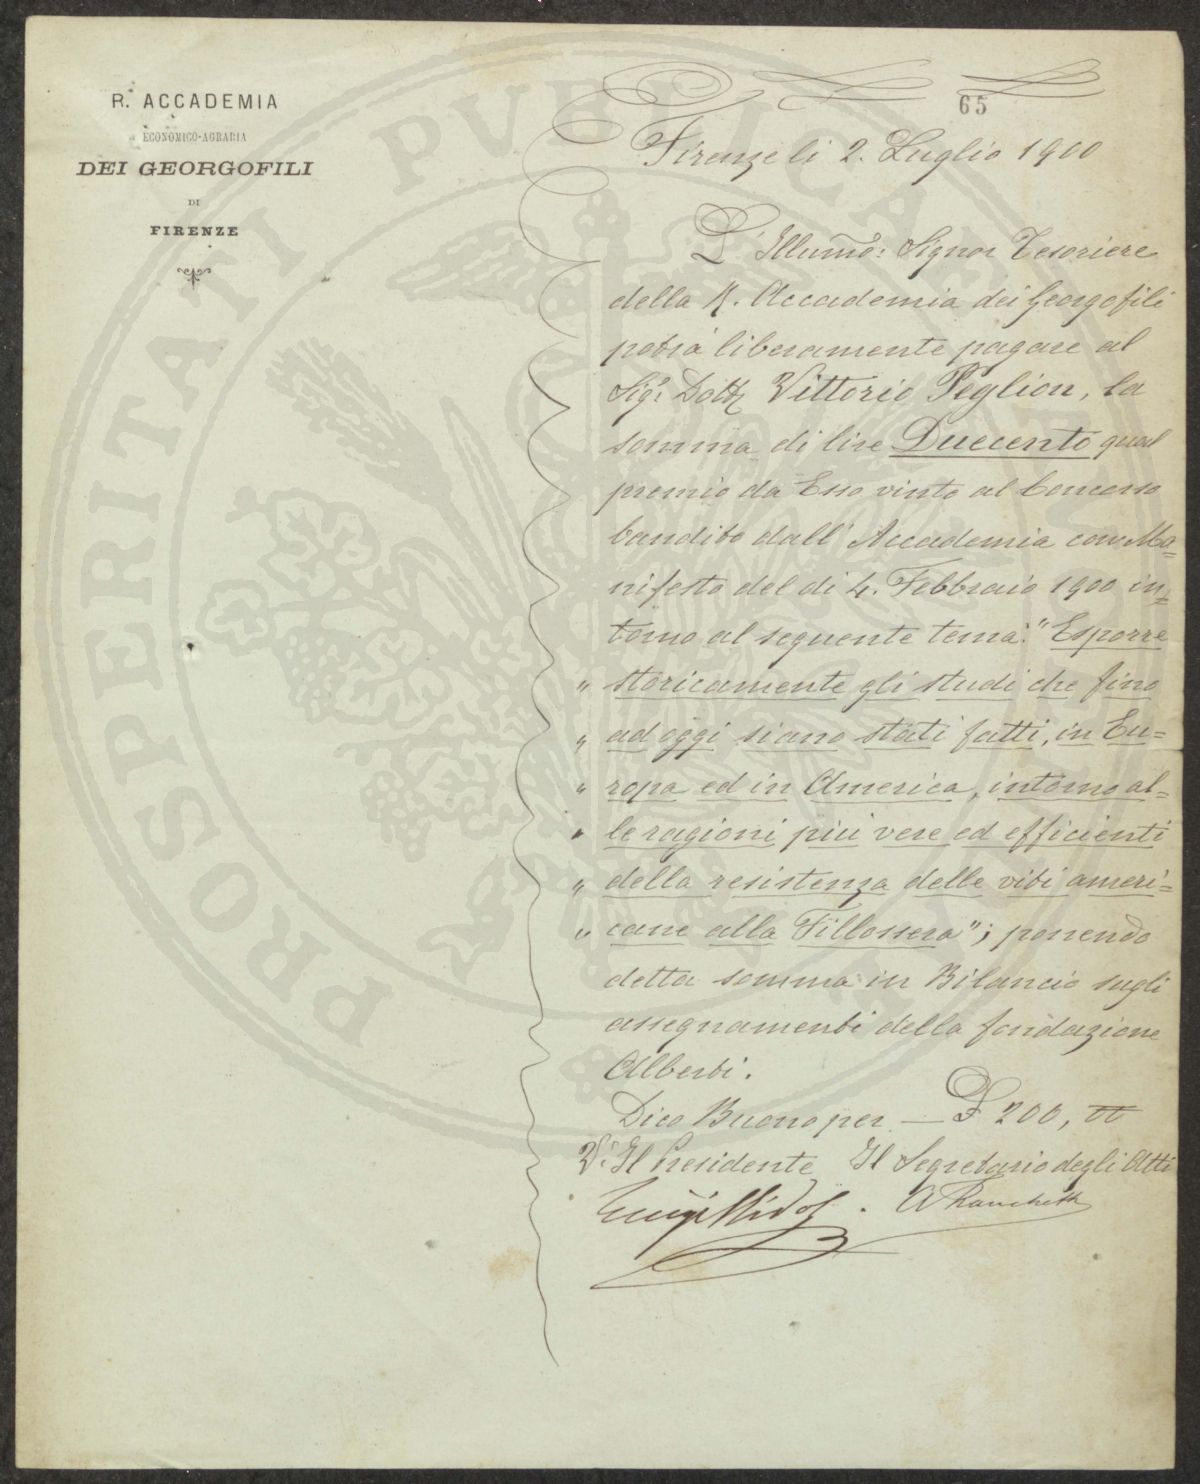 R. ACCADEMIA
ECONOMICO-AGRARIA
DEI GEORGOFILI
DI
FIRENZE
65
Firenze li 2. Luglio 1900
L'Illumo: Signor Tesoriere
della R. Accademia dei Georgofili
potrà liberamente pagare al
Sigr: Dott Vittorio Peglion, la
somma di lire Duecento qual
premio da Esso vinto al Concorso
bandito dall' Accademia con Ma=
nifesto del di 4. Febbraio 1900 in=
torno al seguente tema: "Esporre
" storicamente gli studi che fino
" ad oggi siano stati fatti, in Eu=
" ropa ed in America, intorno al=
" le ragioni più vere ed efficienti
" della resistenza delle viti ameri=
" cane alla Fillossera"; ponendo
detta somma in Bilancio sugli
assegnamenti della fondazione
Alberti.
Dico Buono per — £ 200,
V: Il Presidente Il Segretario degli Atti
PROSPERITATI PVBLICAE